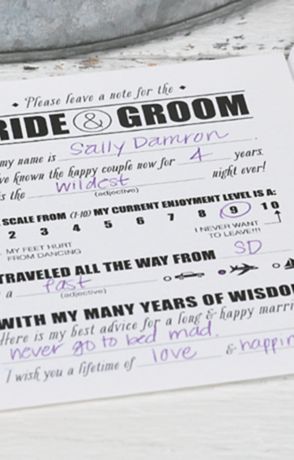 Please leave a note for the
RIDE & GROOM
my name is Sally Damron.
ve known the happy couple now for 4 years.
is the wildest night ever!
(adjective)
SCALE FROM (1-10) MY CURRENT ENJOYMENT LEVEL IS A:
2 3 4 5 6 7 8 9 10
MY FEET HURT FROM DANCING
I NEVER WANT TO LEAVE!!!
TRAVELED ALL THE WAY FROM SD
a fast
(adjective)
WITH MY MANY YEARS OF WISDO
Here is my best advice for a long & happy marri
never go to bed mad.
I wish you a lifetime of love & happin